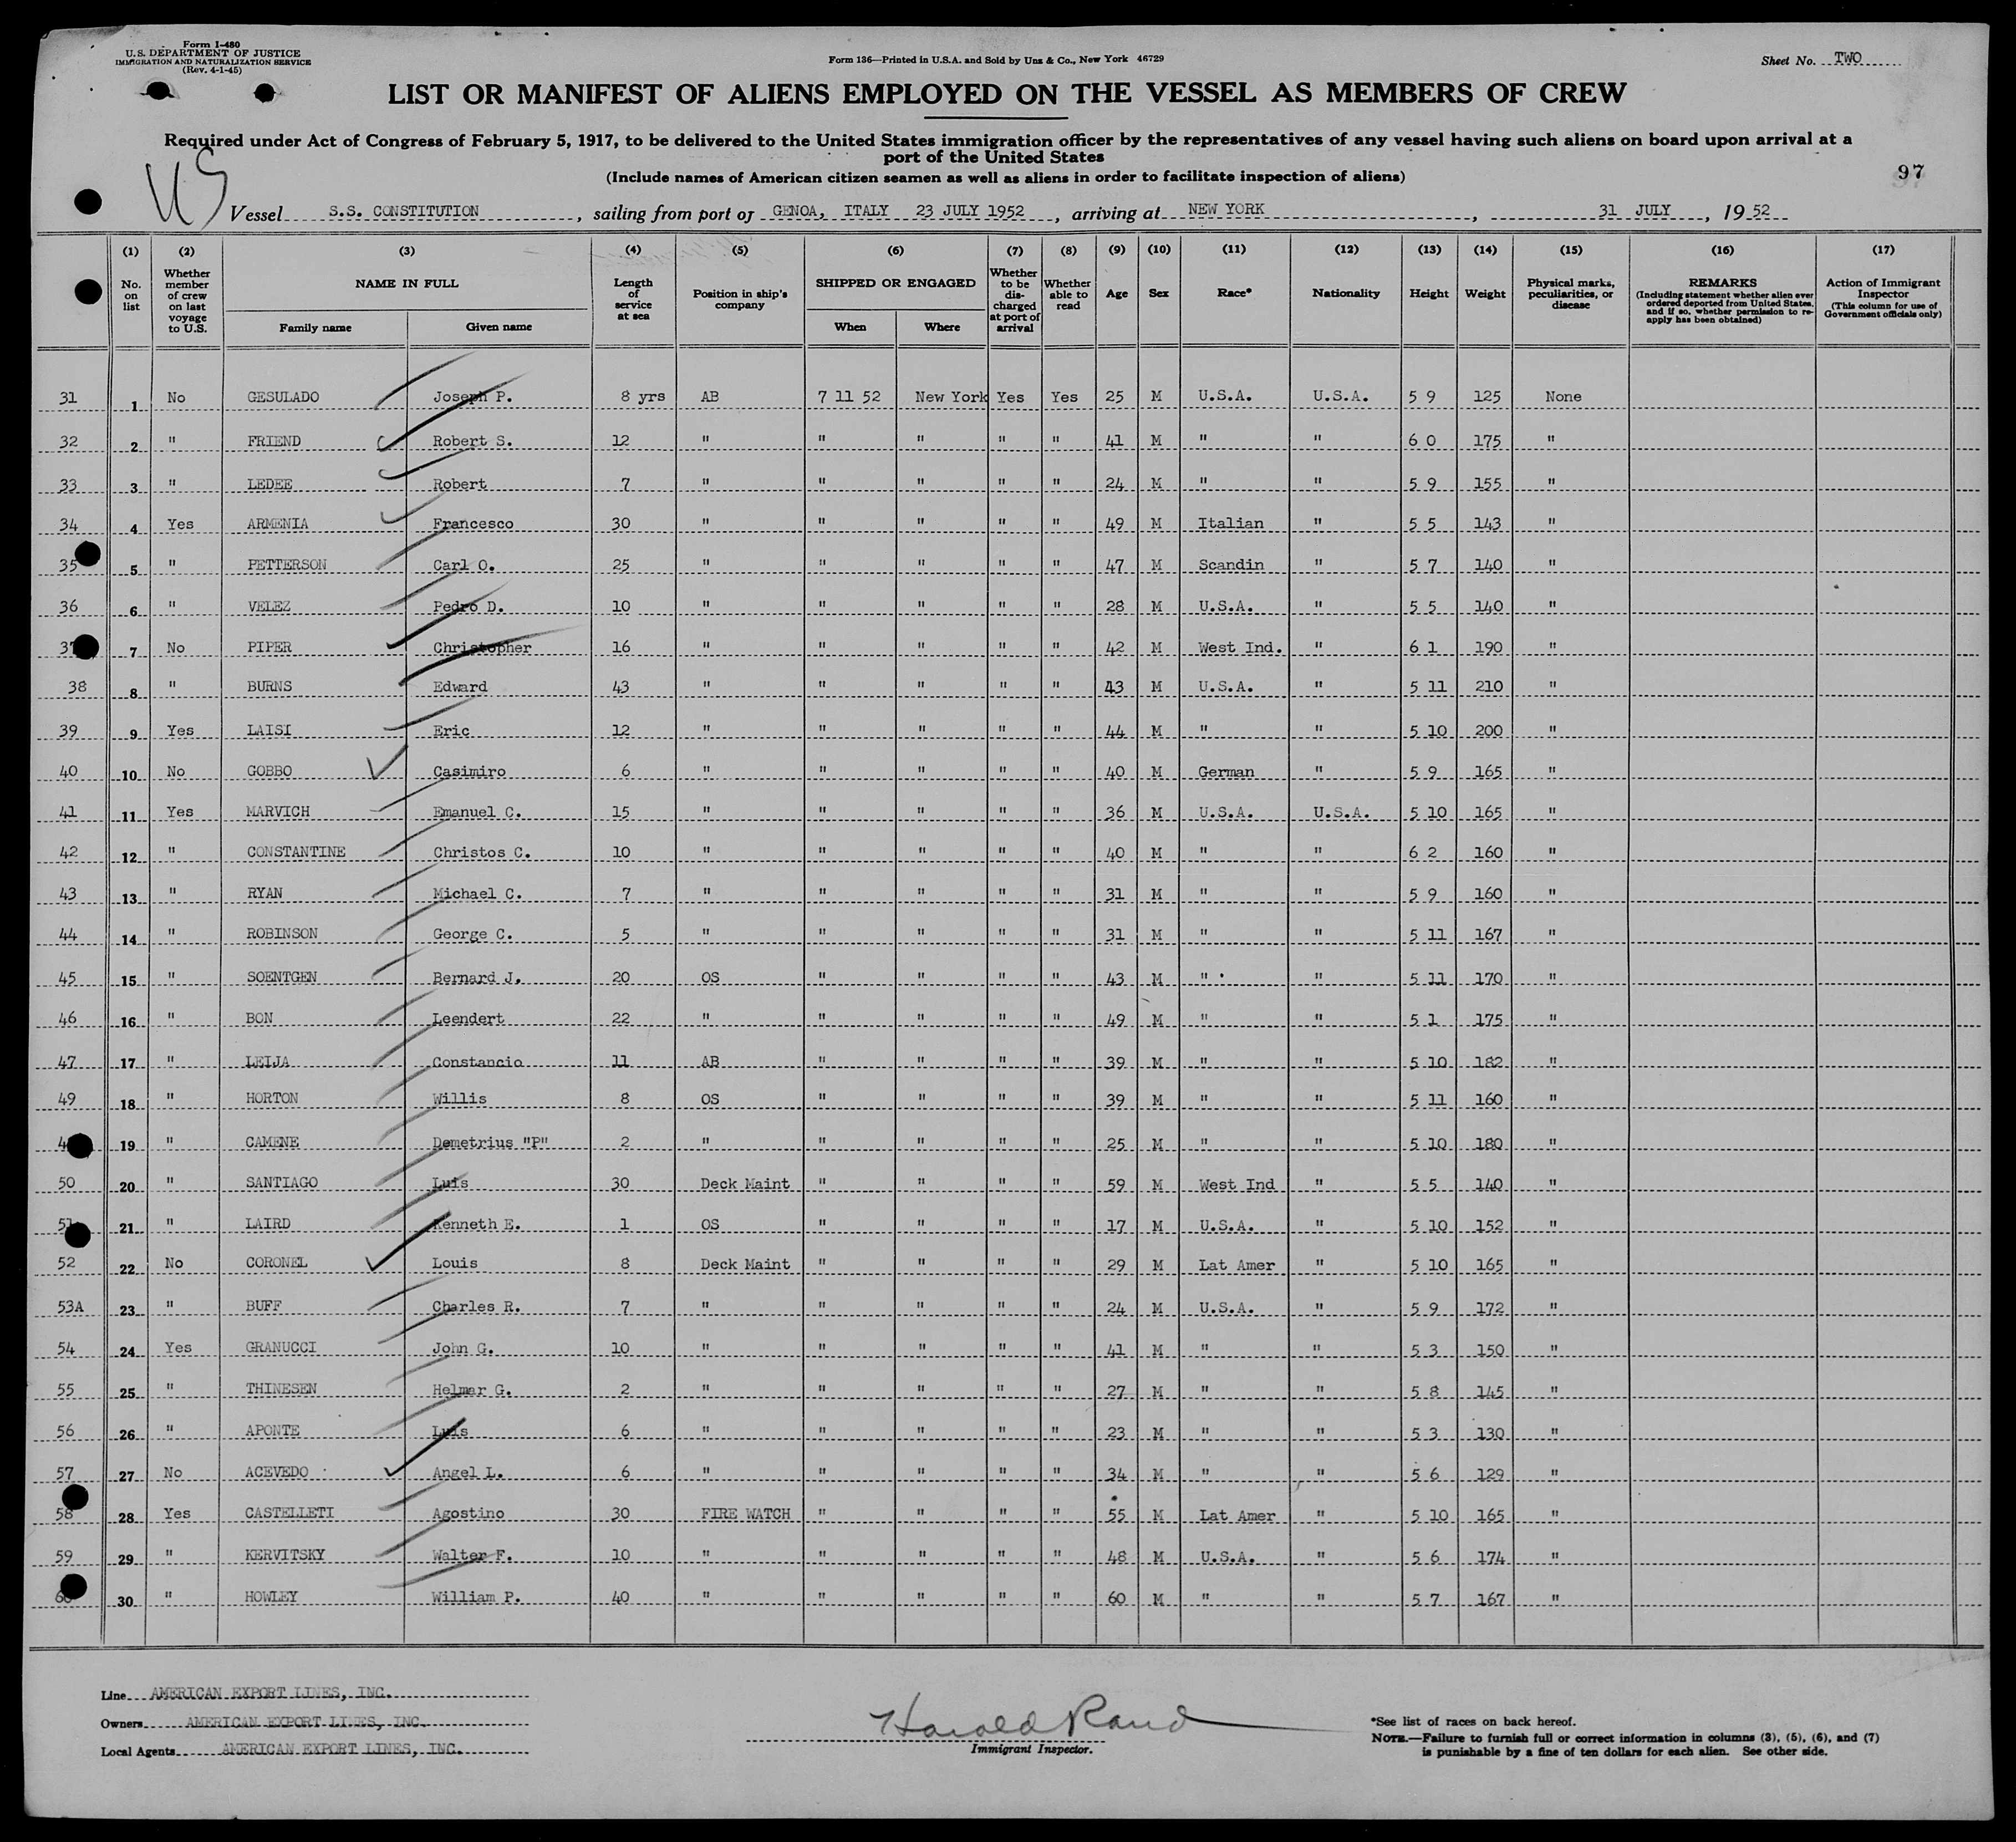 Form I-480
U.S. DEPARTMENT OF JUSTICE
IMMIGRATION AND NATURALIZATION SERVICE
(Rev. 4-1-45)
Form 136—Printed in U.S.A. and Sold by Unz & Co., New York 46729
Sheet No. TWO
LIST OR MANIFEST OF ALIENS EMPLOYED ON THE VESSEL AS MEMBERS OF CREW
Required under Act of Congress of February 5, 1917, to be delivered to the United States immigration officer by the representatives of any vessel having such aliens on board upon arrival at a
port of the United States
(Include names of American citizen seamen as well as aliens in order to facilitate inspection of aliens)
97
US
Vessel S.S. CONSTITUTION, sailing from port of GENOA, ITALY 23 JULY 1952, arriving at NEW YORK, 31 JULY, 1952
(1) (2) (3) (4) (5) (6) (7) (8) (9) (10) (11) (12) (13) (14) (15) (16) (17)
No. on list
Whether member of crew on last voyage to U.S.
NAME IN FULL
Family name Given name
Length of service at sea
Position in ship's company
SHIPPED OR ENGAGED
When Where
Whether to be discharged at port of arrival
Whether able to read
Age
Sex
Race*
Nationality
Height
Weight
Physical marks, peculiarities, or disease
REMARKS
(Including statement whether alien ever ordered deported from United States, and if so, whether permission to reapply has been obtained)
Action of Immigrant Inspector
(This column for use of Government officials only)
31 1 No GESULADO Joseph P. 8 yrs AB 7 11 52 New York Yes Yes 25 M U.S.A. U.S.A. 5 9 125 None
32 2 " FRIEND Robert S. 12 " " " " " 41 M " " 6 0 175 "
33 3 " LEDEE Robert 7 " " " " " 24 M " " 5 9 155 "
34 4 Yes ARMENIA Francesco 30 " " " " " 49 M Italian " 5 5 143 "
35 5 " PETTERSON Carl O. 25 " " " " " 47 M Scandin " 5 7 140 "
36 6 " VELEZ Pedro D. 10 " " " " " 28 M U.S.A. " 5 5 140 "
37 7 No PIPER Christopher 16 " " " " " 42 M West Ind. " 6 1 190 "
38 8 " BURNS Edward 43 " " " " " 43 M U.S.A. " 5 11 210 "
39 9 Yes LAISI Eric 12 " " " " " 44 M " " 5 10 200 "
40 10 No GOBBO Casimiro 6 " " " " " 40 M German " 5 9 165 "
41 11 Yes MARVICH Emanuel C. 15 " " " " " 36 M U.S.A. U.S.A. 5 10 165 "
42 12 " CONSTANTINE Christos C. 10 " " " " " 40 M " " 6 2 160 "
43 13 " RYAN Michael C. 7 " " " " " 31 M " " 5 9 160 "
44 14 " ROBINSON George C. 5 " " " " " 31 M " " 5 11 167 "
45 15 " SOENTGEN Bernard J. 20 OS " " " " 43 M " " 5 11 170 "
46 16 " BON Leendert 22 " " " " " 49 M " " 5 1 175 "
47 17 " LEIJA Constancio 11 AB " " " " 39 M " " 5 10 182 "
49 18 " HORTON Willis 8 OS " " " " 39 M " " 5 11 160 "
19 " CAMENE Demetrius "P" 2 " " " " " 25 M " " 5 10 180 "
50 20 " SANTIAGO Luis 30 Deck Maint " " " " 59 M West Ind " 5 5 140 "
51 21 " LAIRD Kenneth E. 1 OS " " " " 17 M U.S.A. " 5 10 152 "
52 22 No CORONEL Louis 8 Deck Maint " " " " 29 M Lat Amer " 5 10 165 "
53A 23 " BUFF Charles R. 7 " " " " " 24 M U.S.A. " 5 9 172 "
54 24 Yes GRANUCCI John G. 10 " " " " " 41 M " " 5 3 150 "
55 25 " THINESEN Helmar G. 2 " " " " " 27 M " " 5 8 145 "
56 26 " APONTE Luis 6 " " " " " 23 M " " 5 3 130 "
57 27 No ACEVEDO Angel L. 6 " " " " " 34 M " " 5 6 129 "
58 28 Yes CASTELLETI Agostino 30 FIRE WATCH " " " " 55 M Lat Amer " 5 10 165 "
59 29 " KERVITSKY Walter F. 10 " " " " " 48 M U.S.A. " 5 6 174 "
60 30 " HOWLEY William P. 40 " " " " " 60 M " " 5 7 167 "
Line AMERICAN EXPORT LINES, INC.
Owners AMERICAN EXPORT LINES, INC.
Local Agents AMERICAN EXPORT LINES, INC.
Harold Rand
Immigrant Inspector.
*See list of races on back hereof.
NOTE.—Failure to furnish full or correct information in columns (3), (5), (6), and (7)
is punishable by a fine of ten dollars for each alien. See other side.